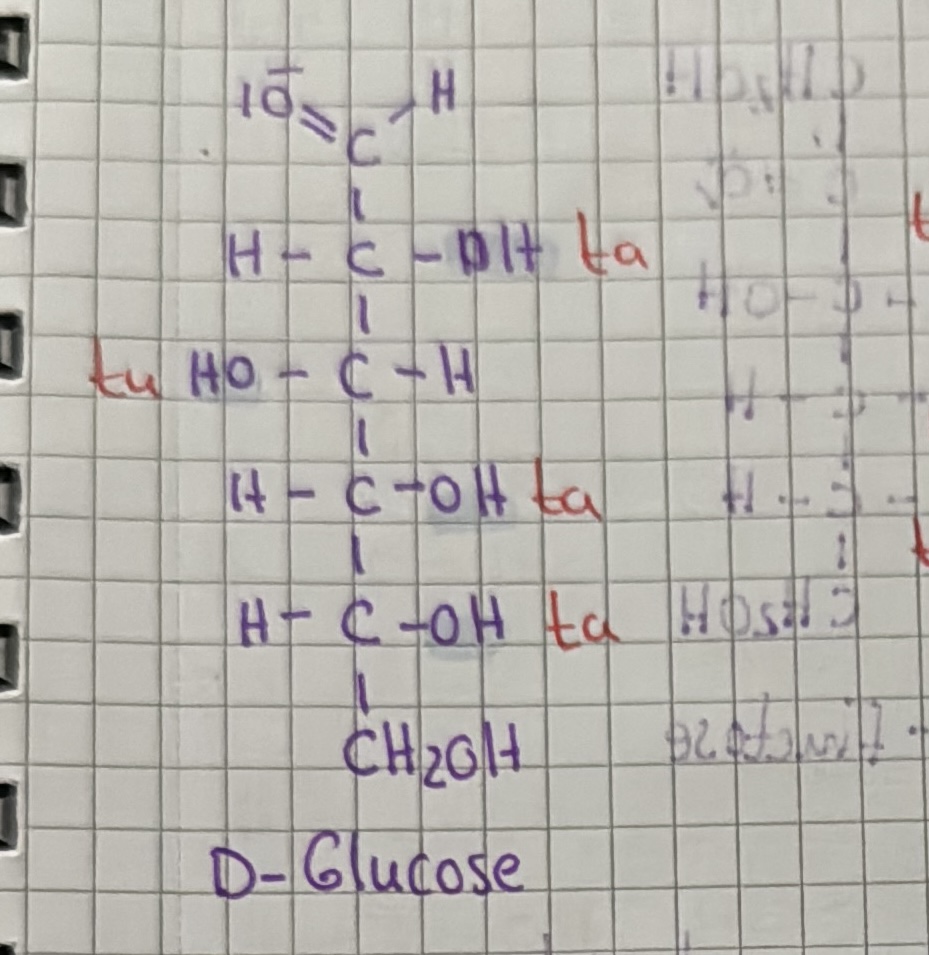 |O̅ = C - H
H - C - OH ta
tu HO - C - H
H - C - OH ta
H - C - OH ta
CH2OH
D-Glucose